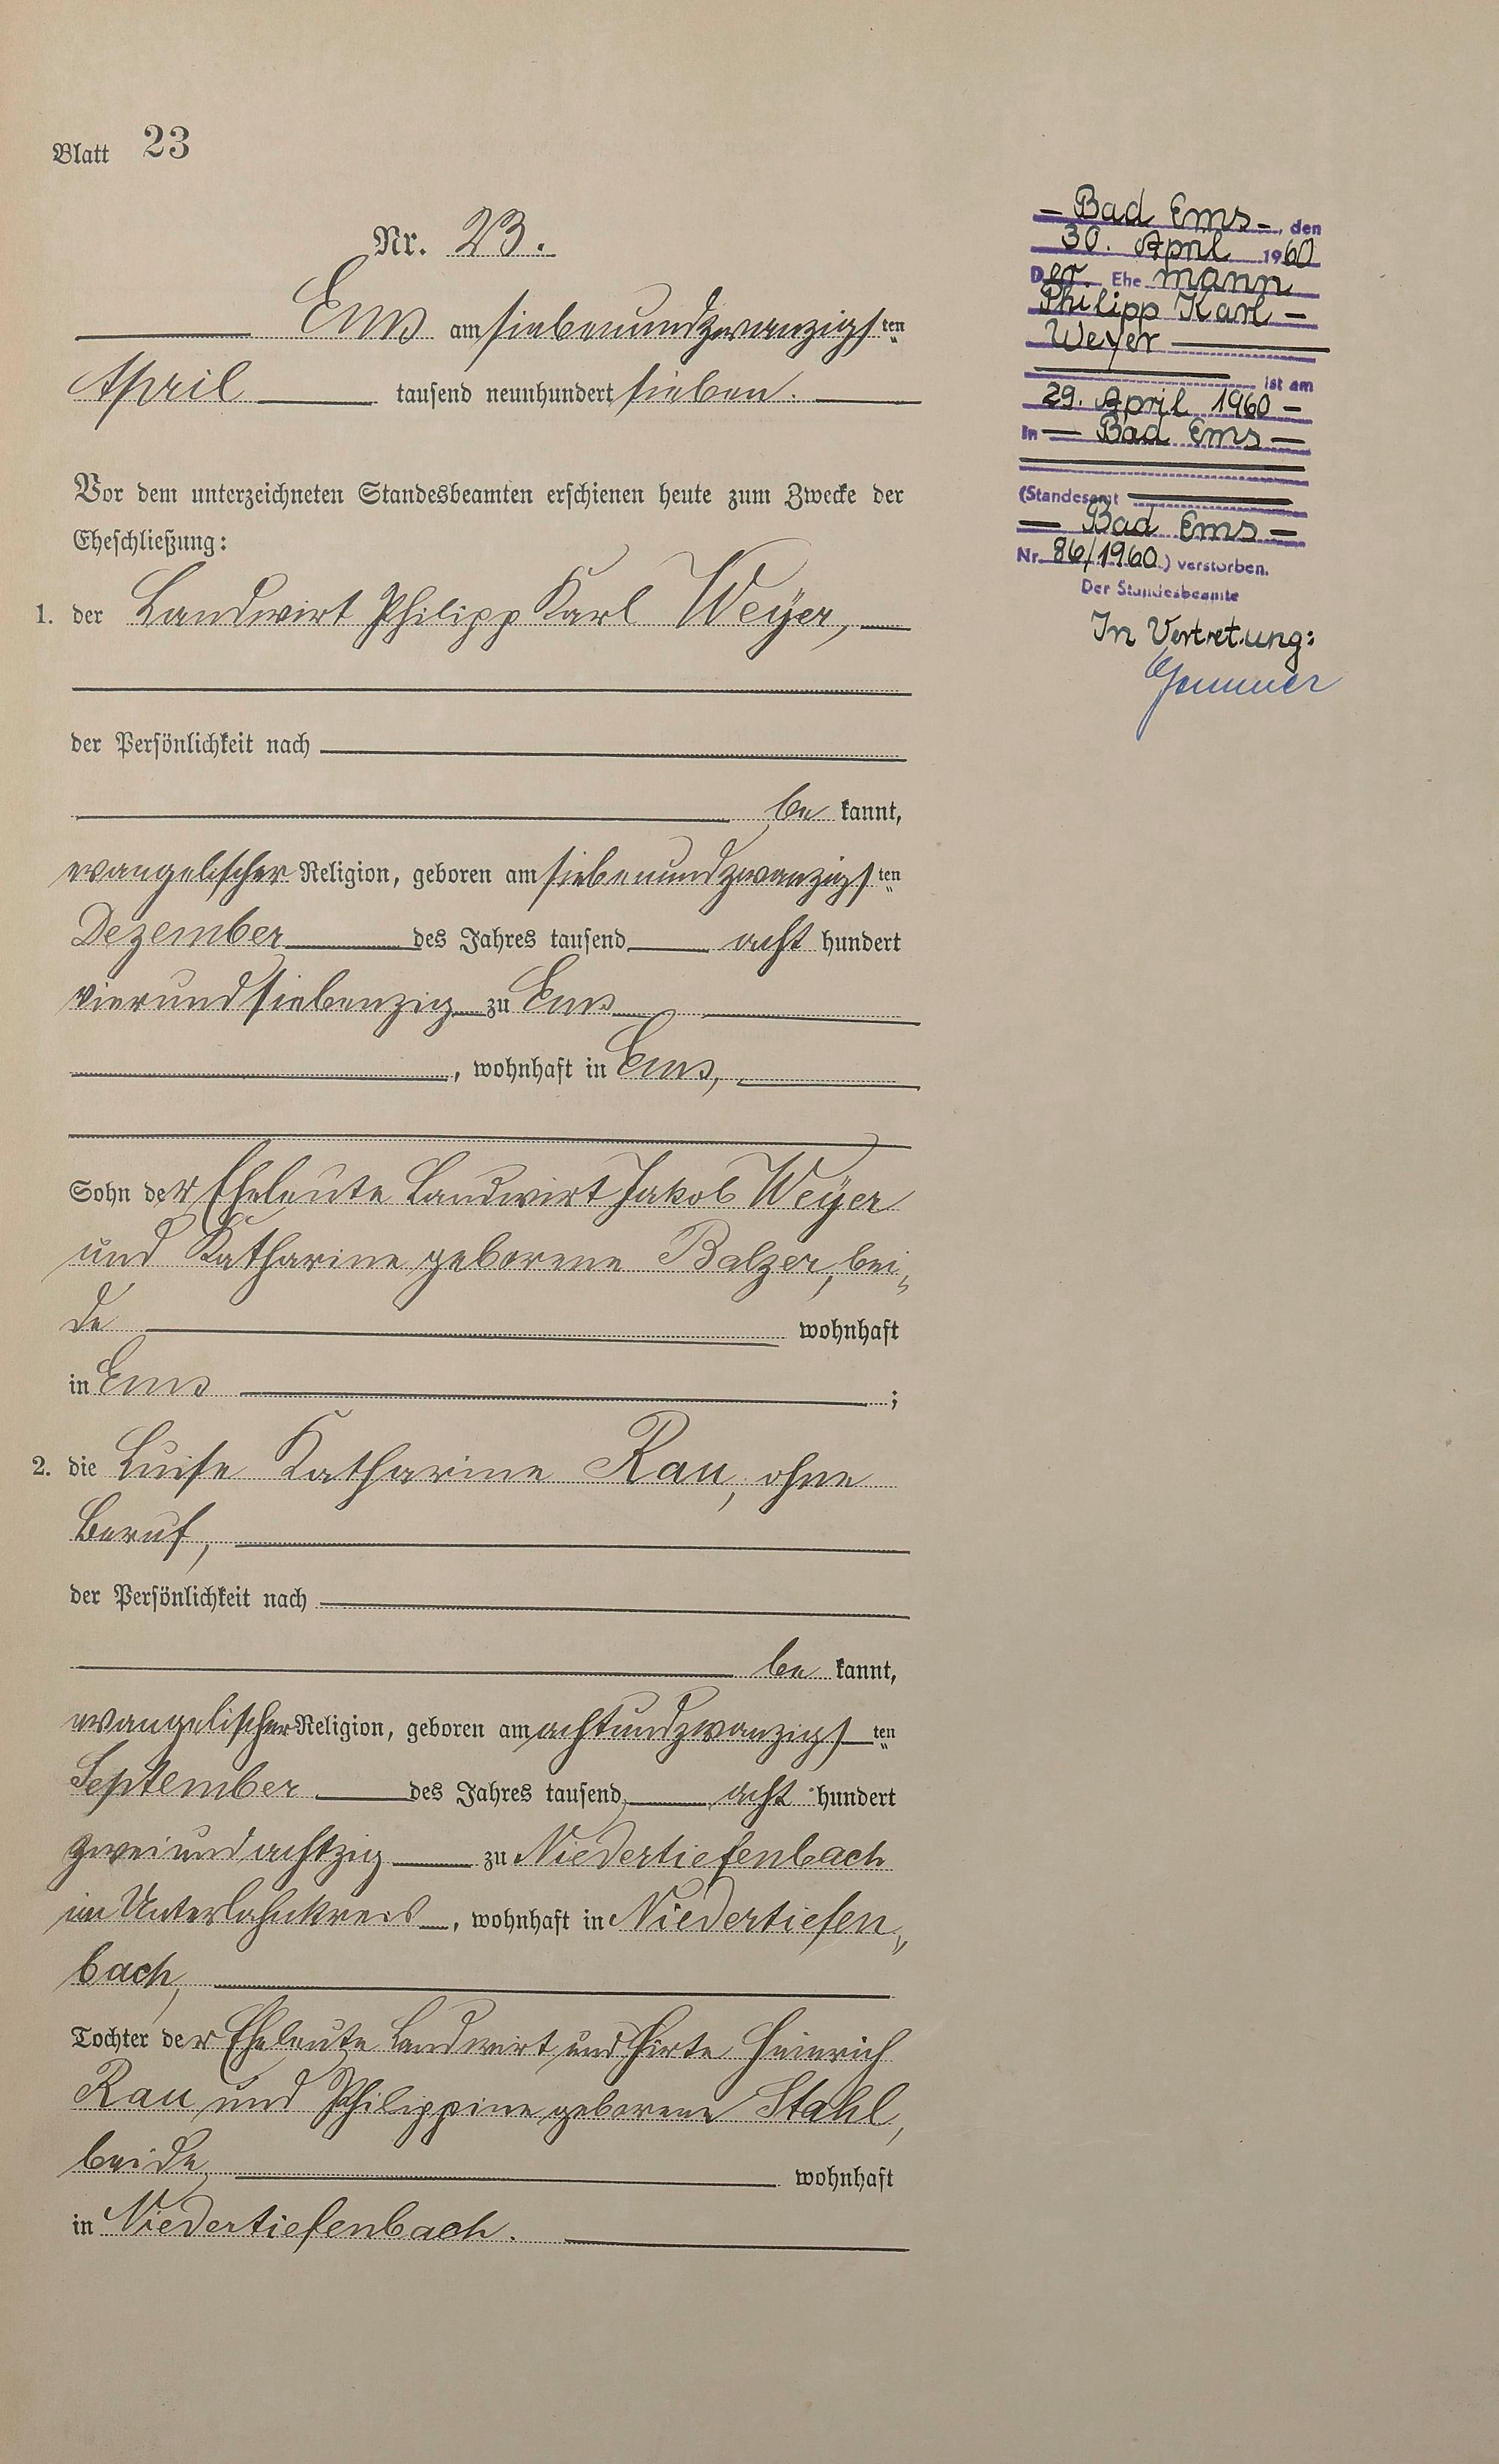 Blatt 23
Nr. 23.
Ems am siebenundzwanzigsten
April tausend neunhundert sieben.
Vor dem unterzeichneten Standesbeamten erschienen heute zum Zwecke der
Eheschließung:
1. der Landwirt Philipp Karl Weyer,
der Persönlichkeit nach
be kannt,
evangelischer Religion, geboren am siebenundzwanzigsten
Dezember des Jahres tausend acht hundert
vierundsiebenzig zu Ems
, wohnhaft in Ems,
Sohn der Eheleute Landwirt Jakob Weyer
und Katharine geborene Balzer, bei„
de wohnhaft
in Ems ;
2. die Luise Katharine Rau, ohne
Beruf,
der Persönlichkeit nach
be kannt,
evangelischer Religion, geboren am achtundzwanzigsten
September des Jahres tausend acht hundert
zweiundachtzig zu Niedertiefenbach
im Unterlahnkreis, wohnhaft in Niedertiefen„
bach,
Tochter der Eheleute Landwirt und Hirte Heinrich
Rau und Philippine geborene Stahl,
beide wohnhaft
in Niedertiefenbach.
– Bad Ems –, den
30. April 1960
Der Ehe mann
Philipp Karl –
Weyer
ist am
29. April 1960 –
in – Bad Ems –
(Standesamt
– Bad Ems –
Nr. 86/1960) verstorben.
Der Standesbeamte
In Vertretung: